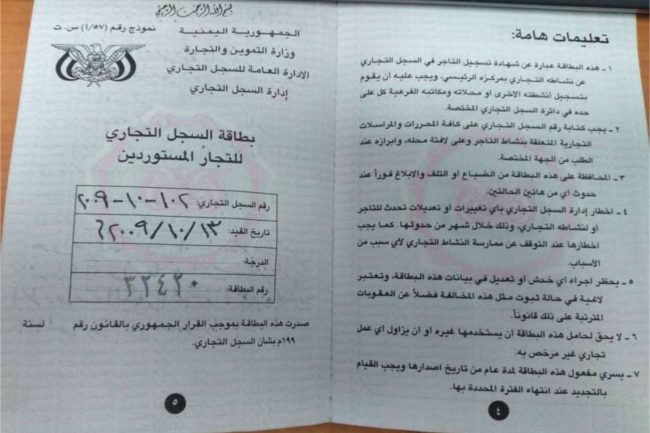 تعليمات هامة:
١ - هذه البطاقة عبارة عن شهادة تسجيل التاجر في السجل التجاري
عن نشاطه التجاري بمركزه الرئيسي، ويجب عليه ان يقوم
بتسجيل أنشطته الأخرى او محلاته ومكاتبه الفرعية كل على
حده في دائرة السجل التجاري المختصة.
٢ - يجب كتابة رقم السجل التجاري على كافة المحررات والمراسلات
التجارية المتعلقة بنشاط التاجر وعلى لافتة محله، وابرازه عند
الطلب من الجهة المختصة.
٣ - المحافظة على هذه البطاقة من الضياع او التلف والابلاغ فوراً عند
حدوث أي من هاتين الحالتين.
٤ - اخطار إدارة السجل التجاري بأي تغييرات او تعديلات تحدث للتاجر
أو لنشاطه التجاري، وذلك خلال شهر من حدوثها. كما يجب
اخطارها عند التوقف عن ممارسة النشاط التجاري لأي سبب من
الاسباب.
٥ - يحظر اجراء أي خدش او تعديل في بيانات هذه البطاقة، وتعتبر
لاغية في حالة ثبوت مثل هذه المخالفة فضلاً عن العقوبات
المترتبة على ذلك قانوناً.
٦ - لا يحق لحامل هذه البطاقة أن يستخدمها غيره او ان يزاول أي عمل
تجاري غير مرخص به.
٧ - يسري مفعول هذه البطاقة لمدة عام من تاريخ اصدارها ويجب القيام
بالتجديد عند انتهاء الفترة المحددة بها.
٤
بسم الله الرحمن الرحيم
الجمهورية اليمنية
وزارة التموين والتجارة
الادارة العامة للسجل التجاري
إدارة السجل التجاري
نموذج رقم (١/٥٧) س.ت
بطاقة السجل التجاري
للتجار المستوردين
رقم السجل التجاري: ١٠٢-١٠-٢٠٠٩
تاريخ القيد: ٢٠٠٩/١٠/١٣
الدرجة:
رقم البطاقة: ٣٢٤٢٠
صدرت هذه البطاقة بموجب القرار الجمهوري بالقانون رقم لسنة
١٩٩م بشان السجل التجاري.
٥